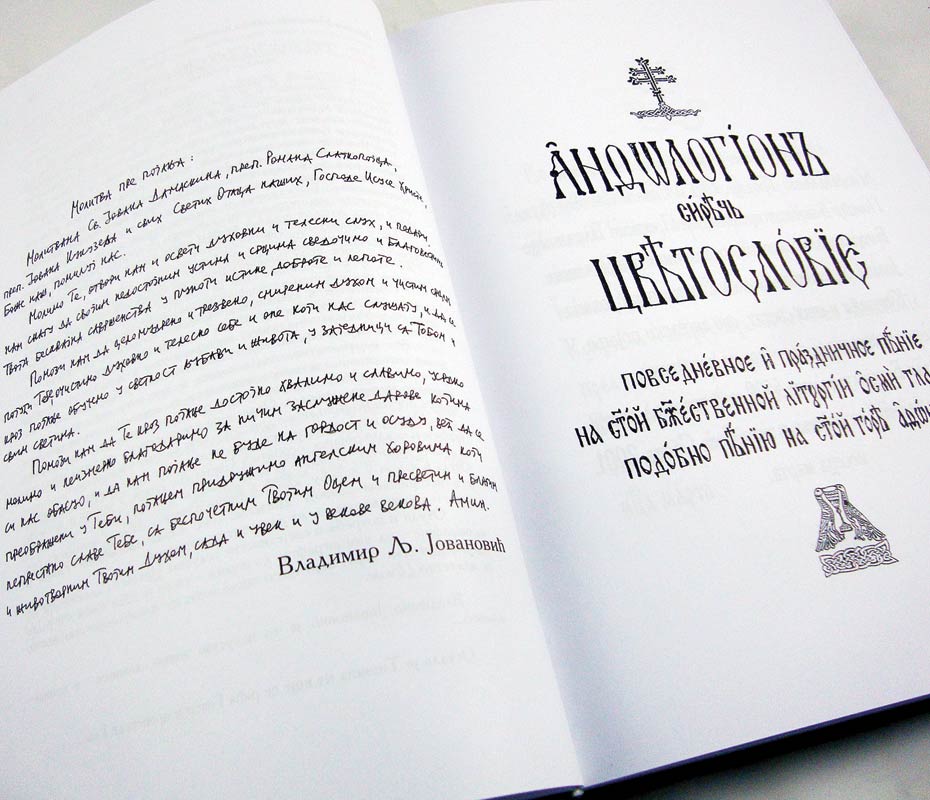 Молитва пре појања:
Молитвама Св. Јована Дамаскина, преп. Романа Слаткопојца,
преп. Јована Кукузеља и свих Светих Отаца наших, Господе Исусе Христе,
Боже наш, помилуј нас.
Молимо Те, отвори нам и освети духовни и телесни слух, и подари
нам снагу да својим недостојним устима и срцима сведочимо и благовестимо
Твоја бескрајна савршенства у пуноћи истине доброте и лепоте.
Помози нам да целомудрено и трезвено, смиреним духом и чистим срцем
појући Теби духовно и телесно себе и оне који нас слушају, и да се
кроз појање обучемо у светлост љубави и живота, у заједници са Тобом и
свим светима.
Помози нам да Те кроз појање достојно хвалимо и славимо, усрдно
молимо и неизмерно благодаримо за ничим заслужене дарове којима
си нас обасјао, и да нам појање не буде на гордост и осуду, већ да се
преображени у Теби, појањем придружимо ангелским хоровима који
непрестано славе Тебе, са беспочетним Твојим Оцем и пресветим и благим
и животворним Твојим Духом, сада и увек и у векове векова. Амин.
Владимир Љ. Јовановић
А҆нѳѡло́гїонъ
си́рѣчь
Цвѣтосло́вїе
повседне́вное и҆ пра́здничное пѣ́нїе
на ст҃о́й бж҃е́ственной лїтꙋргі́и ѻ҆сми́ гла
подо́бно пѣ́нїю на ст҃о́й го́рѣ а҆ѳѡ́